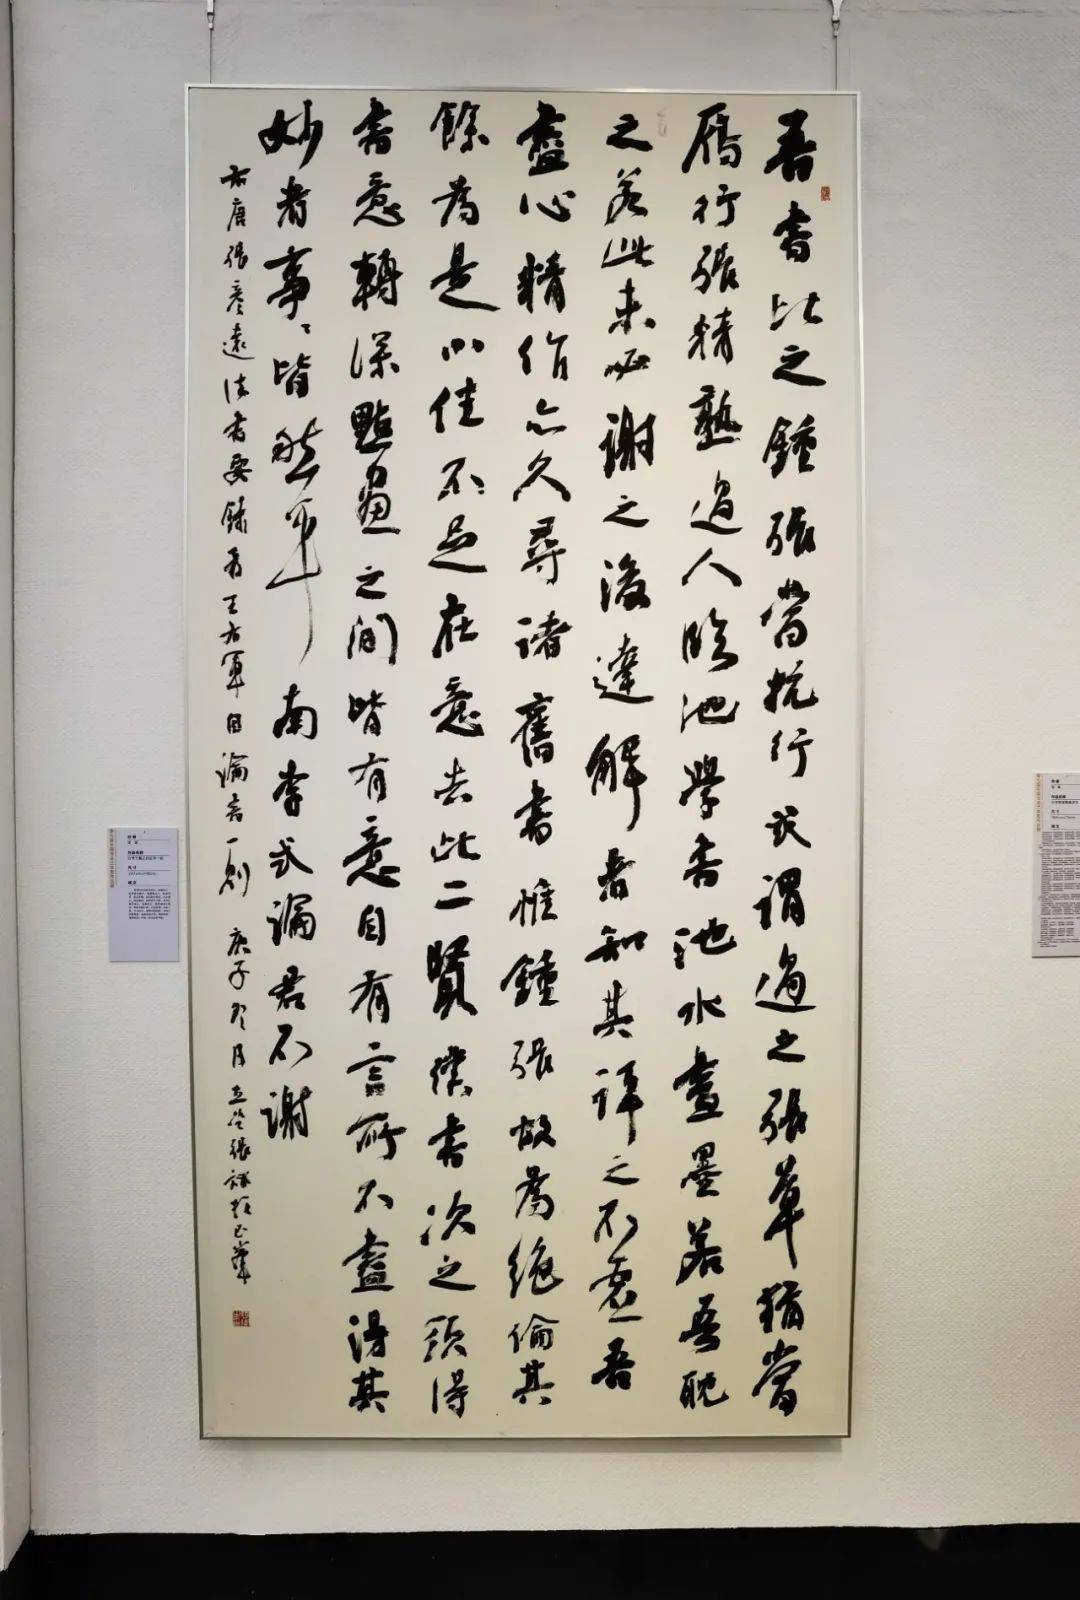 吾書比之鍾張當抗行或謂過之張草猶當
鴈行張精熟過人臨池學書池水盡墨若吾耽
之若此未必謝之後達解者知其評之不虛吾
盡心精作亦久尋諸舊書惟鍾張故為絕倫其
餘為是小佳不足在意去此二賢僕書次之須得
書意轉深點畫之間皆有意自有言所不盡得其
妙者事〻皆然平南李式論君不謝
右唐張彥遠法書要錄王右軍自論書一則 庚子月張